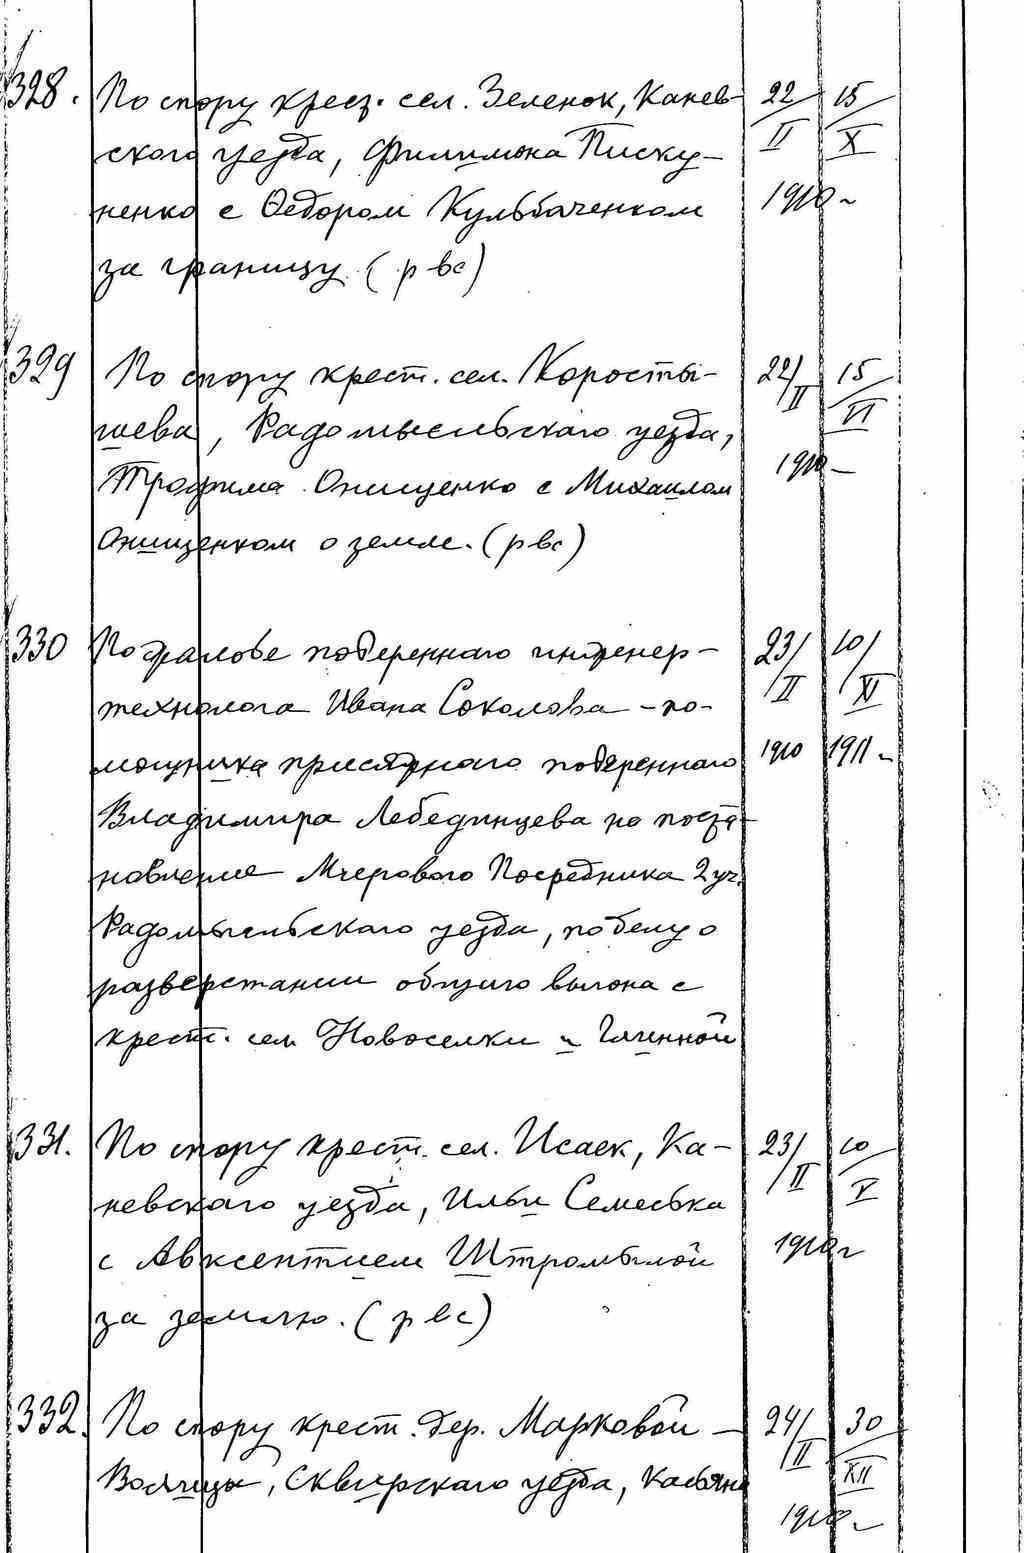 328. По спору крест. сел. Зеленок, Канев- 22/II 15/X
ского уезда, Филимона Писку-
ненко с Федором Кульбаченком 1910 г
за границу. (рвс)
329 По спору крест. сел. Коросты- 22/II 15/VI
шева, Радомысльского уезда,
Трофима Онищенко с Михаилом 1910 г
Онищенком о земле. (рвс)
330 По жалобе поверенного инженер- 23/II 10/XI
технолога Ивана Соколова - по-
мощника присяжного поверенного 1910 1911 г
Владимира Лебединцева на поста-
новление Мирового Посредника 2 уч.
Радомысльского уезда, по делу о
разверстании общего выгона с
крест. сел Новоселки и Глинной
331. По спору крест. сел. Исаек, Ка- 23/II 10/V
невского уезда, Ильи Семеська
с Авксентием Штромбылой 1910 г
за землю. (рвс)
332. По спору крест. дер. Марковой - 24/II 30/XII
Волицы, Сквирского уезда, Касьяна
1910 г